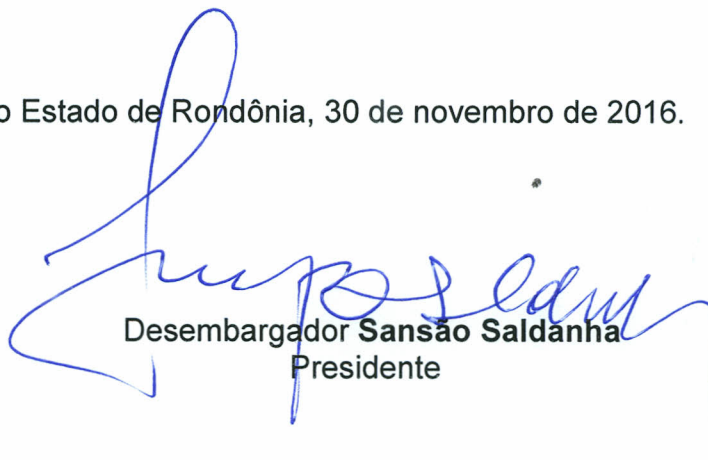 o Estado de Rondônia, 30 de novembro de 2016.
Desembargador Sansão Saldanha
Presidente